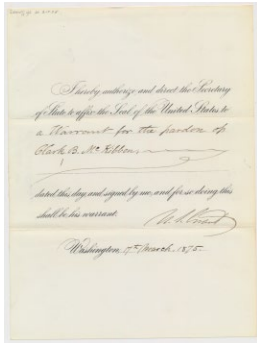 I hereby authorize and direct the Secretary
of State to affix the Seal of the United States to
a Warrant for the pardon of
Clark B. Mc
dated this day, and signed by me, and for so doing this
shall be his warrant.
U. S. Grant
Washington, 17th March, 1875.